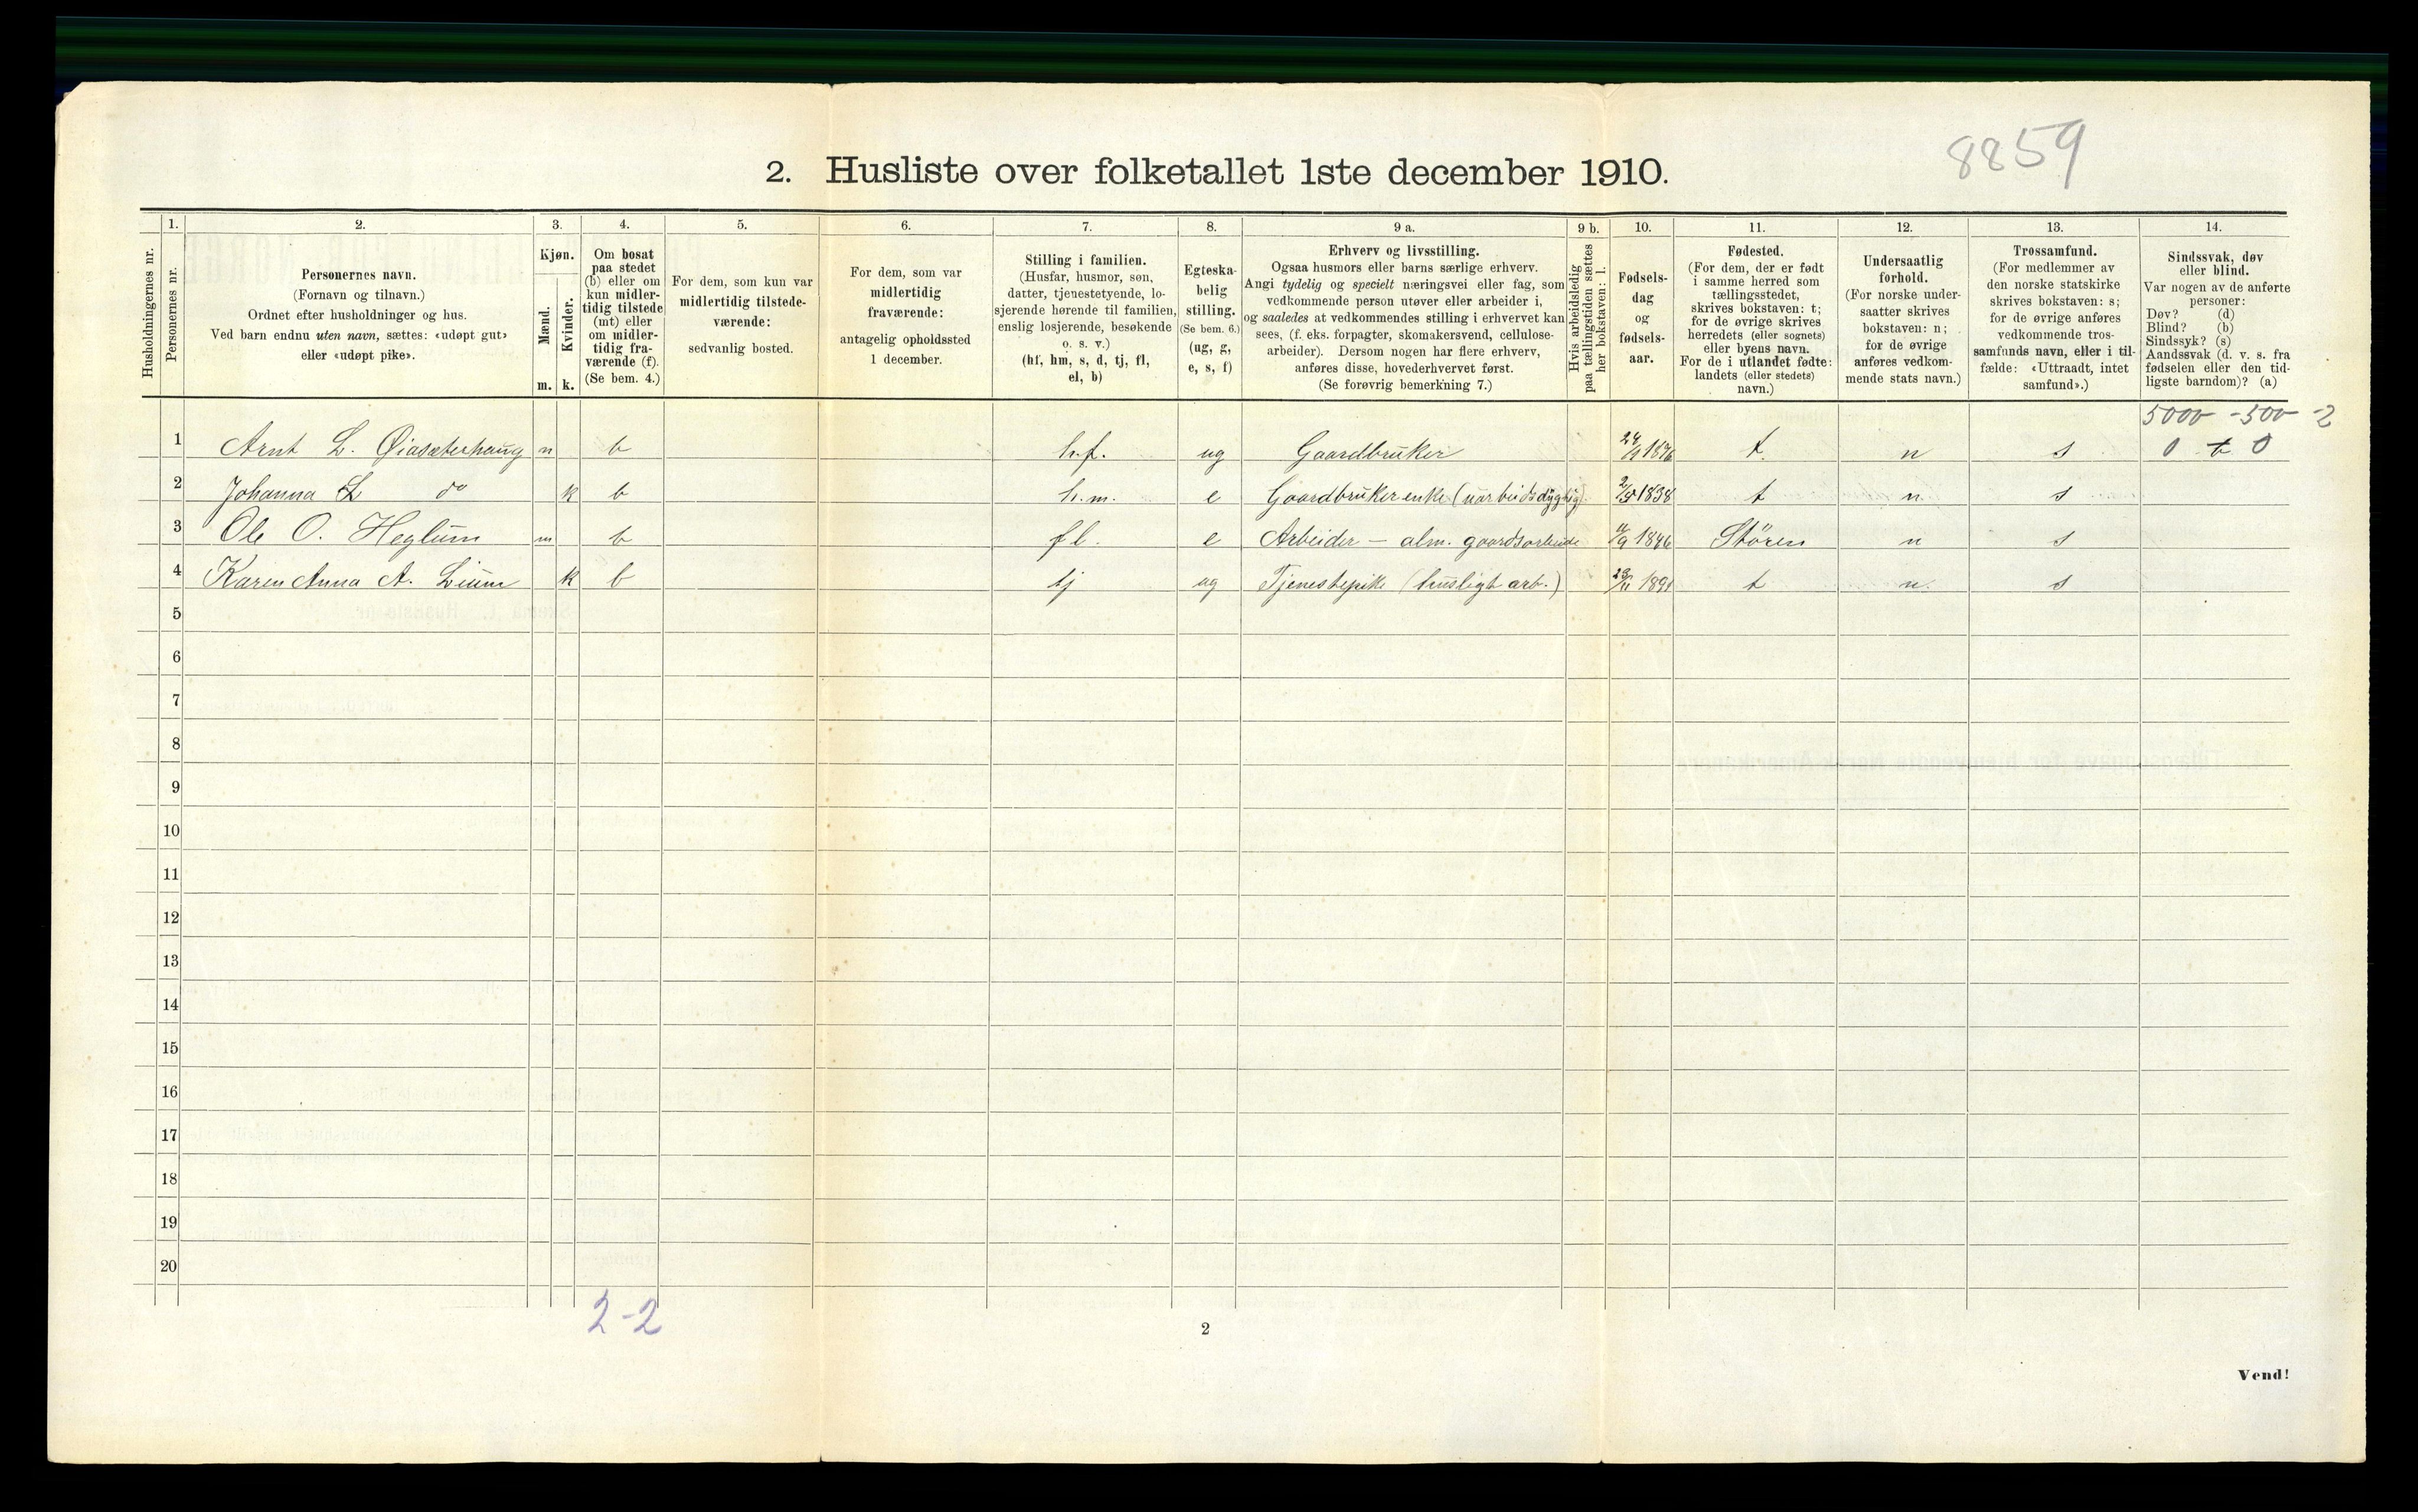 8859
2. Husliste over folketallet 1ste december 1910.
Husholdningernes nr.
1.
Personernes nr.
2.
Personernes navn.
(Fornavn og tilnavn.)
Ordnet efter husholdninger og hus.
Ved barn endnu uten navn, sættes: «udøpt gut»
eller «udøpt pike».
3.
Kjøn.
Mænd.
Kvinder.
m. k.
4.
Om bosat
paa stedet
(b) eller om
kun midler-
tidig tilstede
(mt) eller
om midler-
tidig fra-
værende (f).
(Se bem. 4.)
5.
For dem, som kun var
midlertidig tilstede-
værende:
sedvanlig bosted.
6.
For dem, som var
midlertidig
fraværende:
antagelig opholdssted
1 december.
7.
Stilling i familien.
(Husfar, husmor, søn,
datter, tjenestetyende, lo-
sjerende hørende til familien,
enslig losjerende, besøkende
o. s. v.)
(hf, hm, s, d, tj, fl,
el, b)
8.
Egteska-
belig
stilling.
(Se bem. 6.)
(ug, g,
e, s, f)
9 a.
Erhverv og livsstilling.
Ogsaa husmors eller barns særlige erhverv.
Angi tydelig og specielt næringsvei eller fag, som
vedkommende person utøver eller arbeider i,
og saaledes at vedkommendes stilling i erhvervet kan
sees, (f. eks. forpagter, skomakersvend, cellulose-
arbeider). Dersom nogen har flere erhverv,
anføres disse, hovederhvervet først.
(Se forøvrig bemerkning 7.)
9 b.
Hvis arbeidsledig
paa tællingstiden sættes
her bokstaven: l.
10.
Fødsels-
dag
og
fødsels-
aar.
11.
Fødested.
(For dem, der er født
i samme herred som
tællingsstedet,
skrives bokstaven: t;
for de øvrige skrives
herredets (eller sognets)
eller byens navn.
For de i utlandet fødte:
landets (eller stedets)
navn.)
12.
Undersaatlig
forhold.
(For norske under-
saatter skrives
bokstaven: n;
for de øvrige
anføres vedkom-
mende stats navn.)
13.
Trossamfund.
(For medlemmer av
den norske statskirke
skrives bokstaven: s;
for de øvrige anføres
vedkommende tros-
samfunds navn, eller i til-
fælde: «Uttraadt, intet
samfund».)
14.
Sindssvak, døv
eller blind.
Var nogen av de anførte
personer:
Døv? (d)
Blind? (b)
Sindssyk? (s)
Aandssvak (d. v. s. fra
fødselen eller den tid-
ligste barndom)? (a)
5000 - 500 - 2
1 Arnt L. Øiasæterhaug m b h.f. ug Gaardbruker 1876 t. n s 0 0
2 Johanna L do k b h.m. e Gaardbrukerenke (uarbeidsdygtig) 1838 t n s
3 Ole O. Heglum m b fl. e Arbeider - alm. gaardsarbeide 1846 Støren n s
4 Karen Anna A. Lium k b tj ug Tjenestepike (husligt arb.) 1891 t n. s
5
6
7
8
9
10
11
12
13
14
15
16
17
18
19
20
2-2
2
Vend!